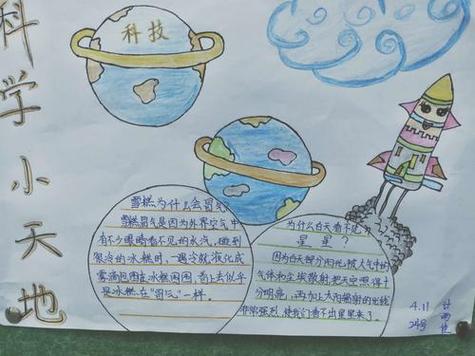 科学小天地
科技
雪糕为什么会冒气
雪糕冒气是因为外界空气中
有不少眼睛看不见的水汽，碰到
很冷的冰糕时，一遇冷就液化成
雾滴包围在冰糕周围，看上去似乎
是冰糕在“冒气”一样。
为什么白天看不见
星星？
因为白天部分阳光被大气中的
气体和尘埃散射，把天空照得十
分明亮，再加上太阳辐射的光线
非常强烈，使我们看不出星星来了。
4.11
24号